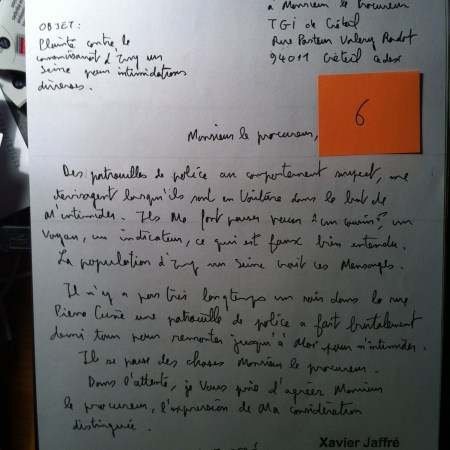 à Monsieur le Procureur
TGI de Créteil
Rue Pasteur Valery Radot
94011 Créteil cedex
OBJET:
Plainte contre le
commissariat d'Ivry sur
Seine pour intimidations
diverses.
6
Monsieur le procureur,
Des patrouilles de police au comportement suspect, me
dévisagent lorsqu'ils sont en Voiture dans le but de
M'intimider. Ils Me font passer pour un un
Voyou, un indicateur, ce qui est faux bien entendu.
La population d'Ivry sur Seine croit ces Mensonges.
Il n'y a pas très longtemps un soir dans la rue
Pierre Curie une patrouille de police a fait brutalement
demi tour pour remonter jusqu'à Moi pour m'intimider.
Il se passe des choses Monsieur le procureur.
Dans l'attente, je Vous prie d'agréer Monsieur
le procureur, l'expression de Ma considération
distinguée.
Xavier Jaffré